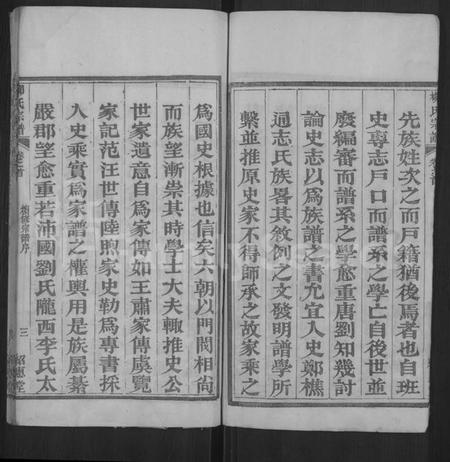 先族姓次之而戶籍猶後焉者也自班
史專志戶口而譜系之學亡自後世並
廢編審而譜系之學愈重唐劉知幾討
論史志以為族譜之書允宜人史鄭樵
通志氏族畧其敘例之文發明譜學所
繫並推原史家不得師承之故家乘之
為國史根據也信矣六朝以門閥相尚
而族望漸崇其時學士大夫輒推史公
世家遺意自為家傳如王肅家傳虞覽
家記范汪世傳陸煦家史勒為專書採
人史乘實為家譜之權輿用是族屬綦
嚴郡望愈重若沛國劉氏隴西李氏太
氏宗譜
卷之首
三